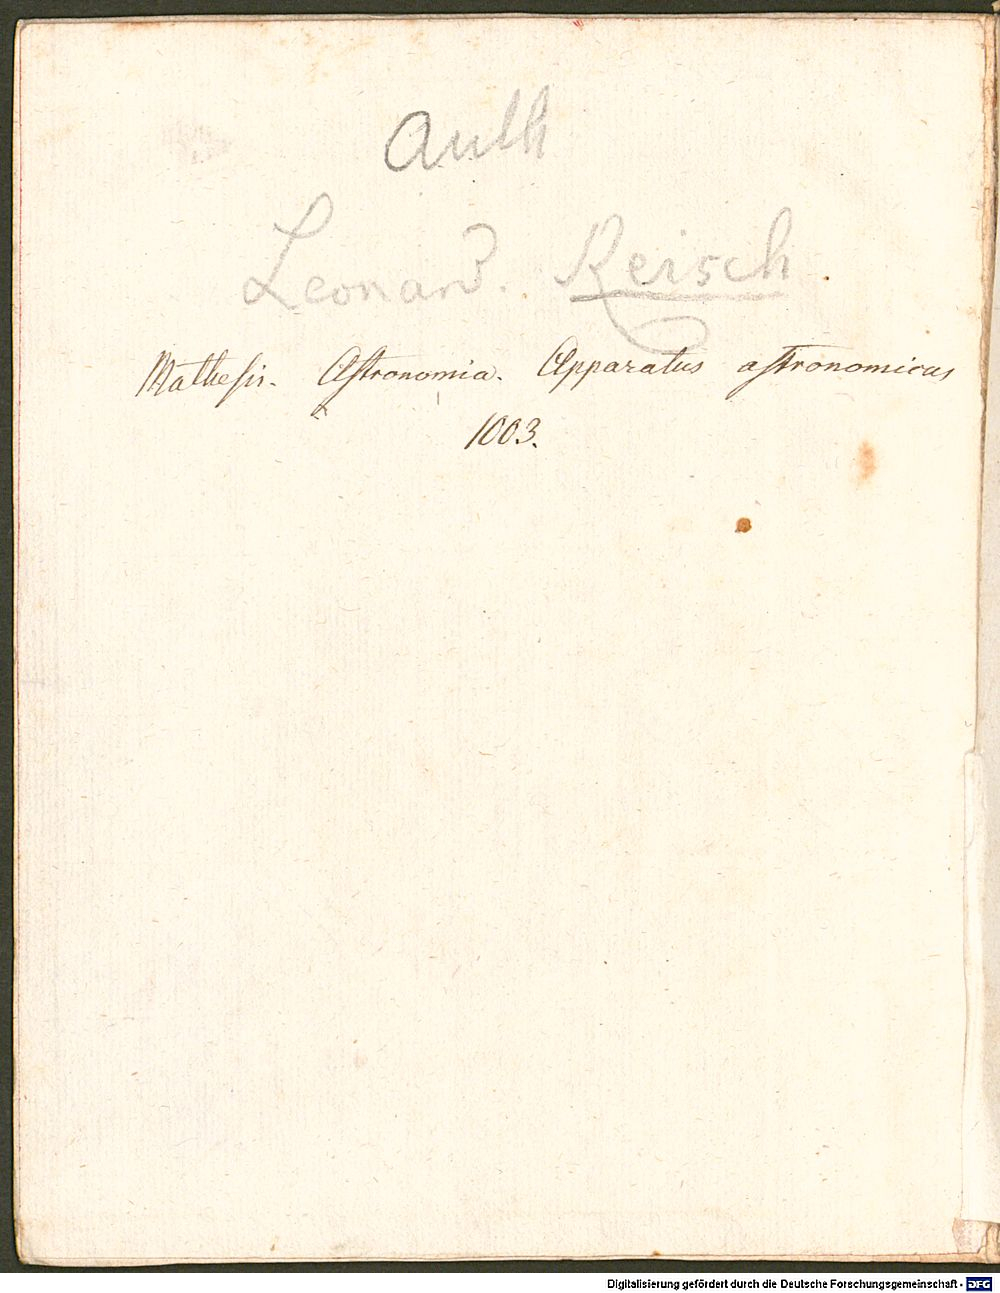 Auth
Leonard. Reisch
Mathesis. Astronomia. Apparatus astronomicus
1003.
Digitalisierung gefördert durch die Deutsche Forschungsgemeinschaft - DFG